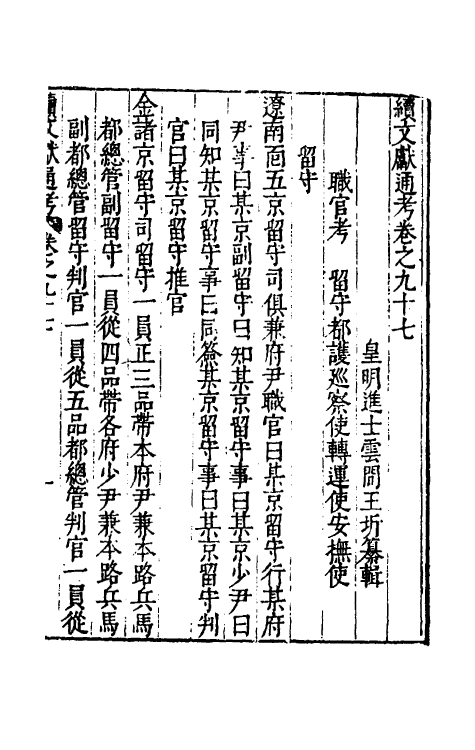 續文獻通考卷之九十七
皇明進士雲間王圻纂輯
職官考　留守都護廵察使轉運使安撫使
留守
遼南面五京留守司俱兼府尹職官曰某京留守行某府
尹事曰某京副留守曰知某京留守事曰某京少尹曰
同知某京留守事曰同簽某京留守事曰某京留守判
官曰某京留守推官
金諸京留守司留守一員正三品帶本府尹兼本路兵馬
都總管副留守一員從四品帶各府少尹兼本路兵馬
副都總管留守判官一員從五品都總管判官一員從
續文獻通考 卷之九十七 一